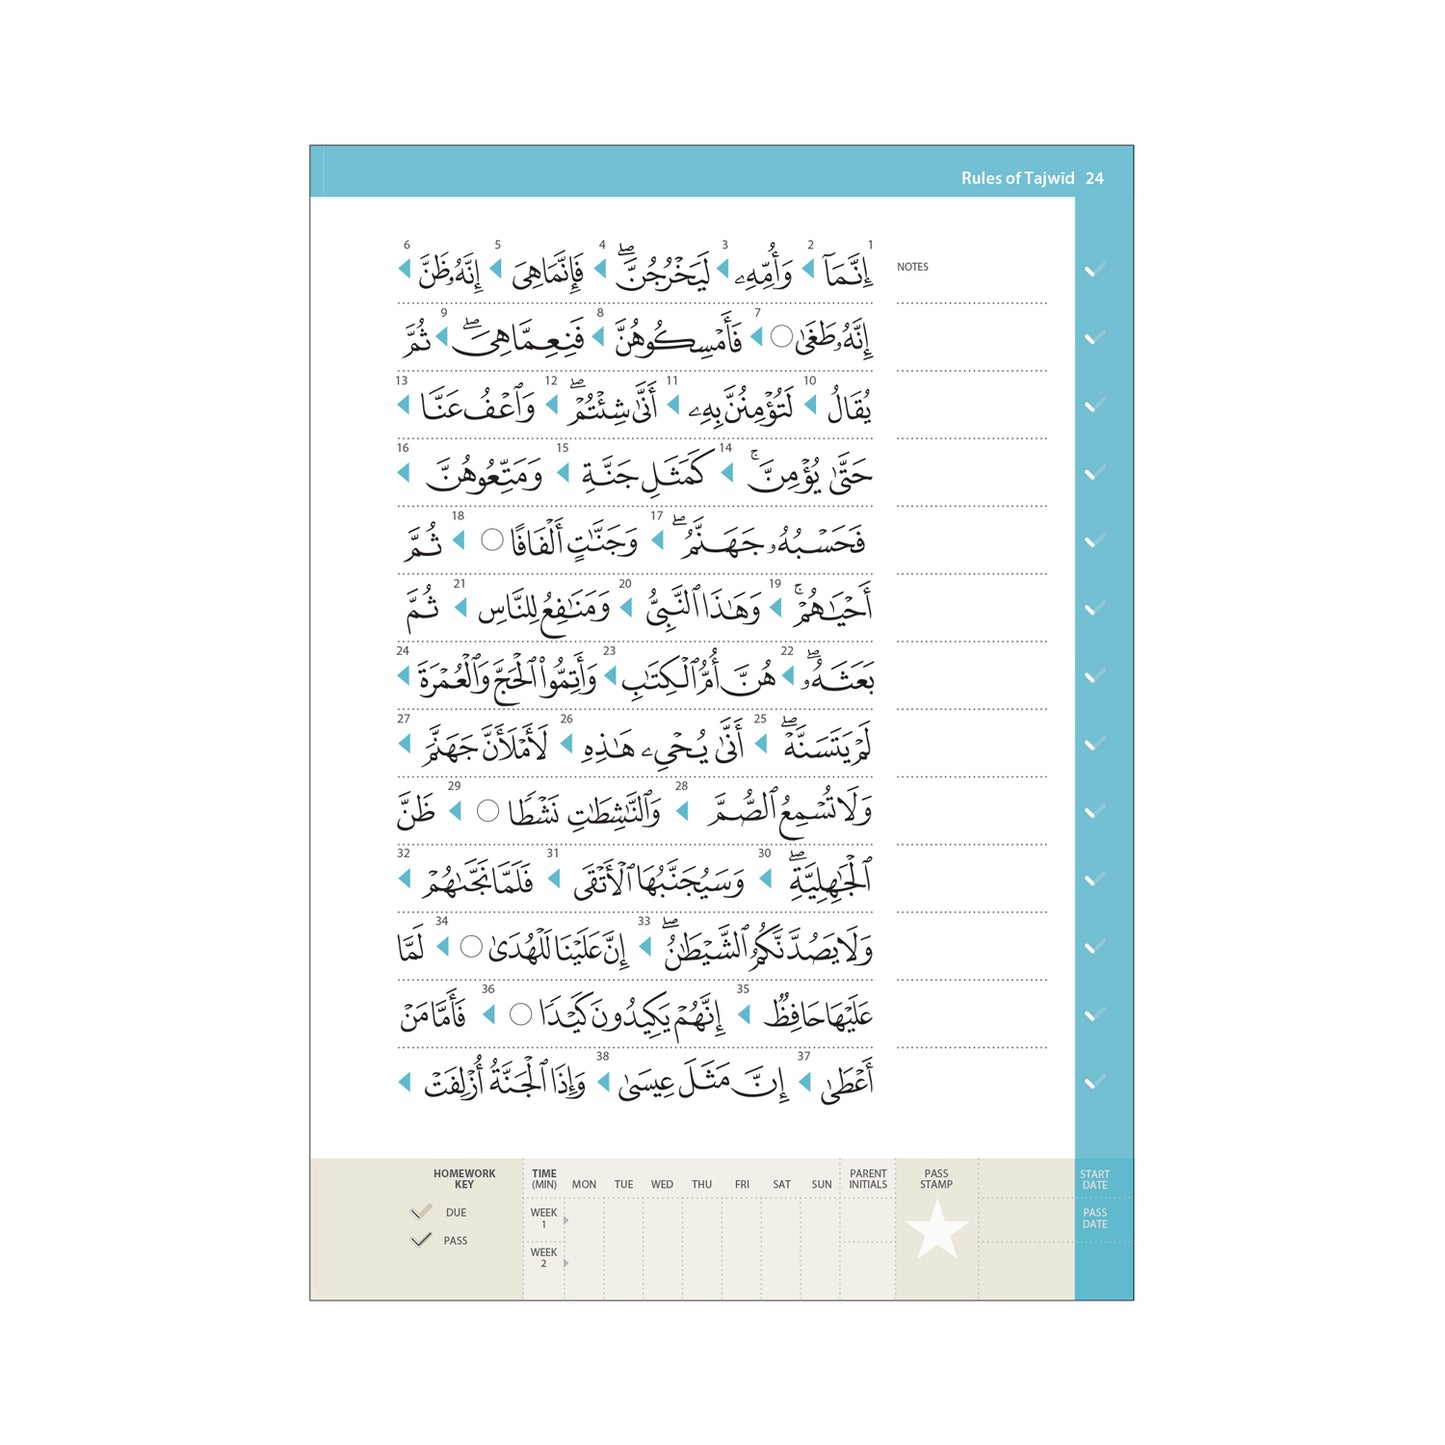 Rules of Tajwīd 24
1 2 3 4 5 6
إِنَّمَآ ◀ وَأُمِّهِۦ ◀ لَيَخْرُجُنَّۖ ◀ فَإِنَّمَا هِىَ ◀ إِنَّهُۥ ظَنَّ ◀
NOTES
7 8 9
إِنَّهُۥ طَغَىٰ ○ ◀ فَأَمْسِكُوهُنَّ ◀ فَنِعِمَّا هِىَۖ ◀ ثُمَّ
10 11 12 13
يُقَالُ ◀ لَتُؤْمِنُنَّ بِهِۦ ◀ أَنَّىٰ شِئْتُمْۖ ◀ وَٱعْفُ عَنَّا ◀
14 15 16
حَتَّىٰ يُؤْمِنَّۚ ◀ كَمَثَلِ جَنَّةِ ◀ وَمَتِّعُوهُنَّ ◀
17 18
فَحَسْبُهُۥ جَهَنَّمُۖ ◀ وَجَنَّٰتٍ أَلْفَافًا ○ ◀ ثُمَّ
19 20 21
أَحْيَٰهُمْۚ ◀ وَهَٰذَا ٱلنَّبِىُّ ◀ وَمَنَٰفِعُ لِلنَّاسِ ◀ ثُمَّ
22 23 24
بَعَثَهُۥۖ ◀ هُنَّ أُمُّ ٱلْكِتَٰبِ ◀ وَأَتِمُّوا۟ ٱلْحَجَّ وَٱلْعُمْرَةَ ◀
25 26 27
لَمْ يَتَسَنَّهْۖ ◀ أَنَّىٰ يُحْىِۦ هَٰذِهِ ◀ لَأَمْلَأَنَّ جَهَنَّمَ ◀
28 29
وَلَا تُسْمِعُ ٱلصُّمَّ ◀ وَٱلنَّٰشِطَٰتِ نَشْطًا ○ ◀ ظَنَّ
30 31 32
ٱلْجَٰهِلِيَّةِۖ ◀ وَسَيُجَنَّبُهَا ٱلْأَتْقَى ◀ فَلَمَّا نَجَّىٰهُمْ ◀
33 34
وَلَا يَصُدَّنَّكُمُ ٱلشَّيْطَٰنُۖ ◀ إِنَّ عَلَيْنَا لَلْهُدَىٰ ○ ◀ لَمَّا
35 36
عَلَيْهَا حَافِظٌ ◀ إِنَّهُمْ يَكِيدُونَ كَيْدًا ○ ◀ فَأَمَّا مَنْ
37 38
أَعْطَىٰ ◀ إِنَّ مَثَلَ عِيسَىٰ ◀ وَإِذَا ٱلْجَنَّةُ أُزْلِفَتْ ◀
HOMEWORK KEY
DUE
PASS
TIME (MIN) MON TUE WED THU FRI SAT SUN PARENT INITIALS PASS STAMP START DATE
WEEK 1 PASS DATE
WEEK 2